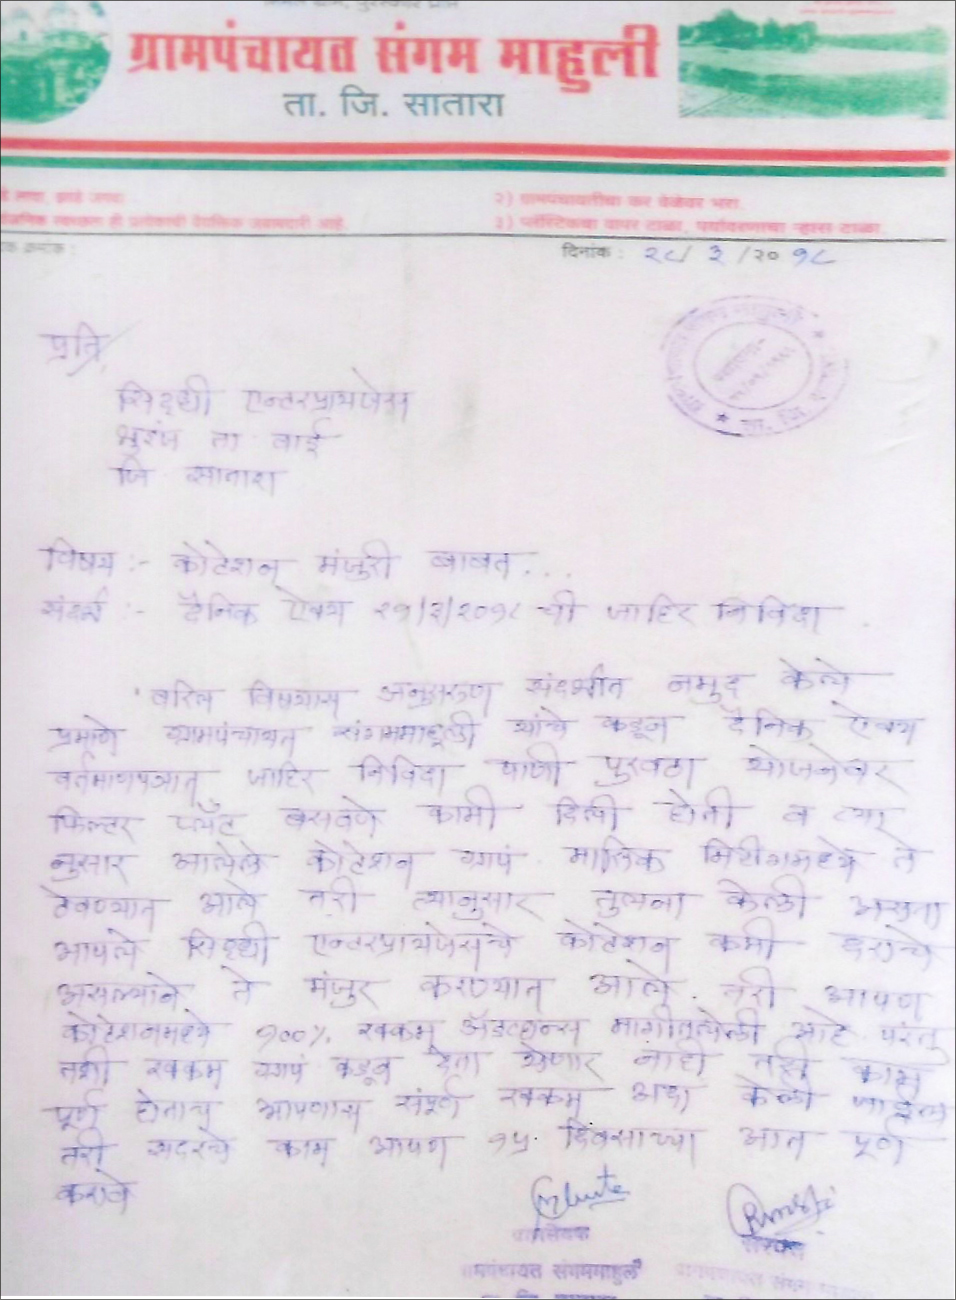 ग्रामपंचायत संगम माहुली
ता. जि. सातारा
२) ग्रामपंचायतीचा कर वेळेवर भरा.
३) प्लॅस्टिकचा वापर टाळा, पर्यावरणाचा ऱ्हास टाळा.
दिनांक : २८/ ३ /२० १८
प्रति,
सिध्दी एन्टरप्रायजेस
भुईंज ता वाई
जि सातारा
विषय :- कोटेशन मंजुरी बाबत...
संदर्भ :- दैनिक ऐक्य २१/३/२०१८ ची जाहिर निविदा .
वरिल विषयास अनुसरुण संदर्भात नमुद केले
प्रमाणे ग्रामपंचायत संगममाहूली यांचे कडून दैनिक ऐक्य
वर्तमाणपत्रात जाहिर निविदा पाणी पुरवठा योजनेवर
फिल्टर प्लँट बसवणे कामी दिली होती व त्या
नुसार आलेले कोटेशन ग्रापं. मासिक मिटींगमध्ये ते
ठेवण्यात आले तरी त्यानुसार तुलना केली असता
आपले सिध्दी एन्टरप्रायजेसचे कोटेशन कमी दराचे
असल्याने ते मंजुर करण्यात आले. तरी आपण
कोटेशनमध्ये १००% रक्कम अॅडव्हान्स मागीतलेली आहे परंतु
तशी रक्कम ग्रापं कडून देता येणार नाही तरी काम
पूर्ण होताच आपणास संपूर्ण रक्कम अदा केली जाईल
तरी सदरचे काम आपण १५ दिवसाच्या आत पूर्ण
करावे
ग्रामसेवक
सरपंच
ग्रामपंचायत संगममाहुली
ग्रामपंचायत संगम